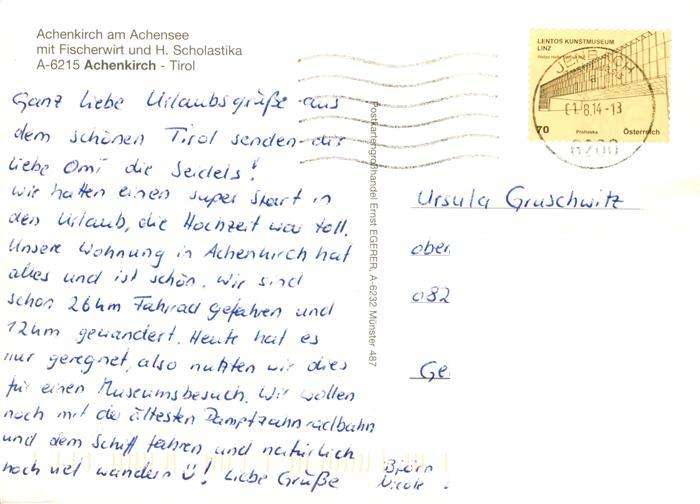 Achenkirch am Achensee
mit Fischerwirt und H. Scholastika
A-6215 Achenkirch - Tirol
Ganz liebe Urlaubsgrüße aus
dem schönen Tirol senden dir
liebe Omi die Seidels!
Wir hatten einen super Start in
den Urlaub, die Hochzeit war toll.
Unsere Wohnung in Achenkirch hat
alles und ist schön. Wir sind
schon 26km Fahrrad gefahren und
12km gewandert. Heute hat es
nur geregnet, also nutzten wir dies
für einen Museumsbesuch. Wir wollen
noch mit der ältesten Dampfzahnradbahn
und dem Schiff fahren und natürlich
noch viel wandern Ü! Liebe Grüße
Björn
Nicole
Postkartengroßhandel Ernst EGERER, A-6232 Münster 487
LENTOS KUNSTMUSEUM
LINZ
JENBACH
01.8.14-13
6200
70
Österreich
Ursula Gruschwitz
ober
082
Ge